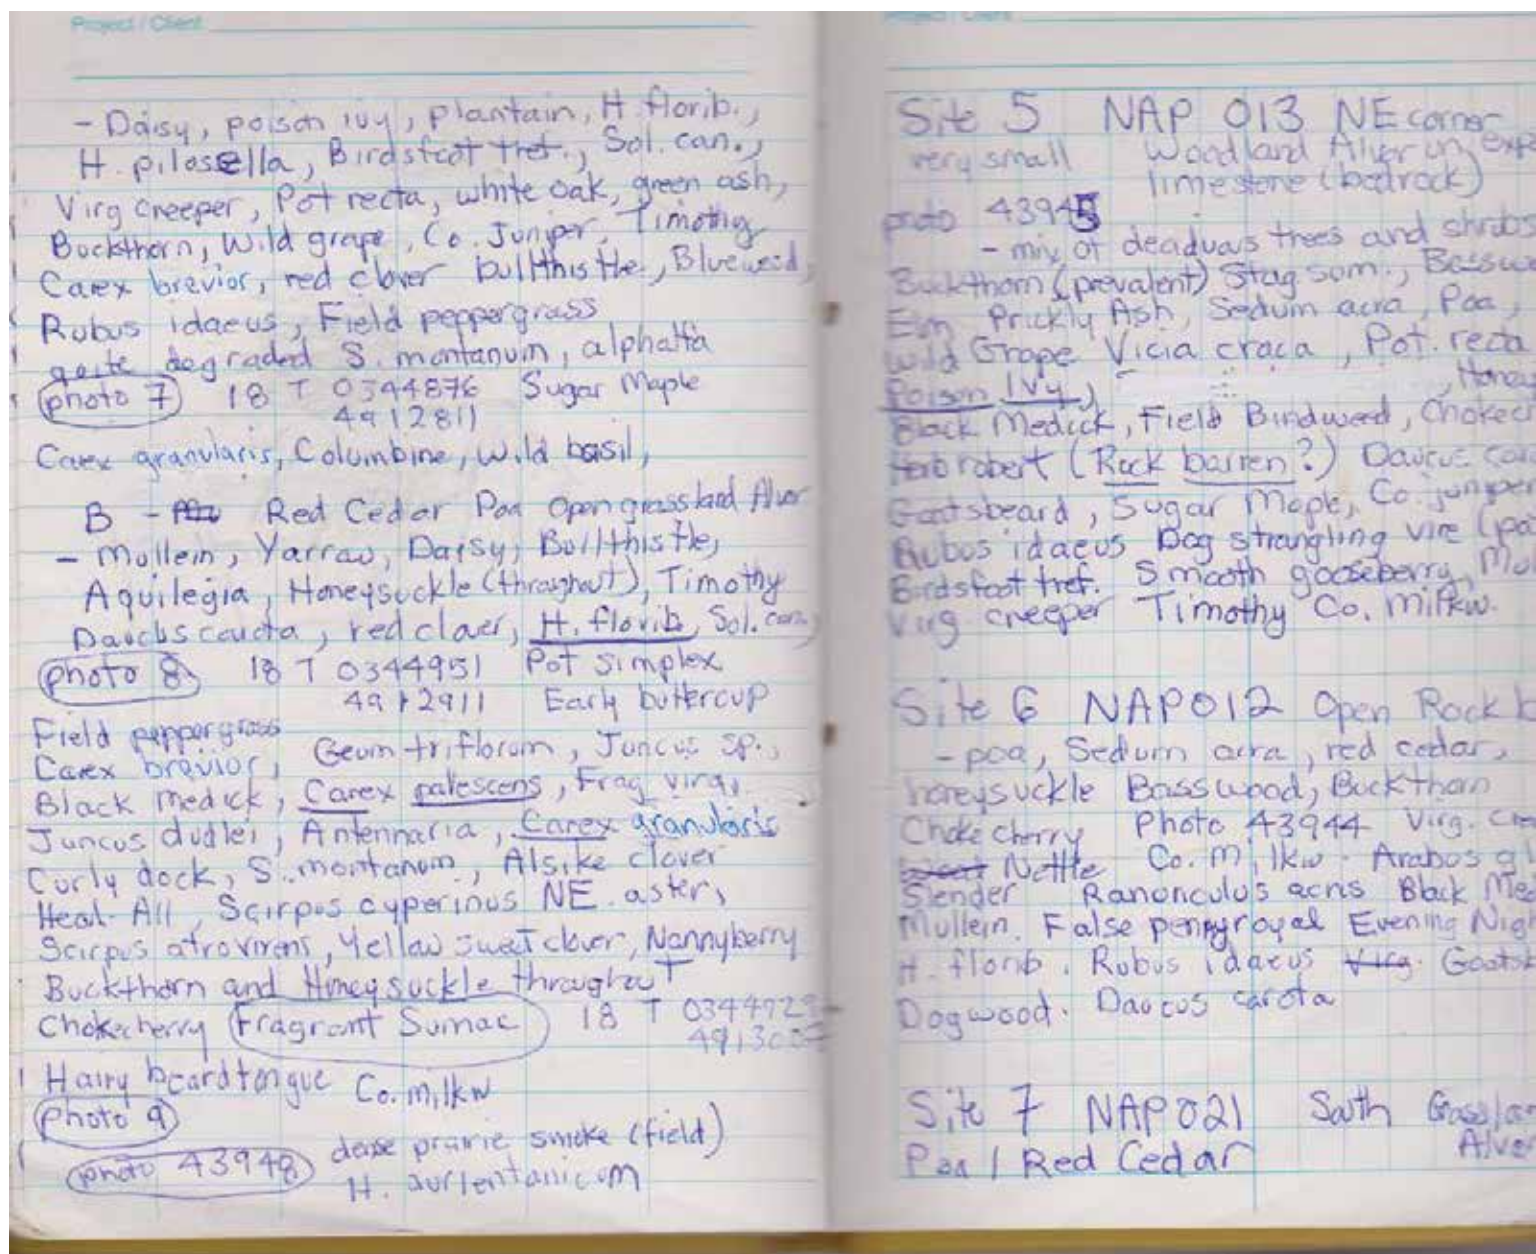 Project / Client
- Daisy, poison ivy, plantain, H. florib.,
H. pilosella, Birdsfoot tref., Sol. can.,
Virg creeper, Pot recta, white oak, green ash,
Buckthorn, Wild grape, Co. Juniper, Timothy
Carex brevior, red clover bullthistle, Blueweed,
Rubus idaeus, Field peppergrass
quite degraded S. montanum, alphalfa
photo 7 18 T 0344876 Sugar Maple
4912811
Carex granularis, Columbine, Wild basil,
B - Red Cedar Poa Open grassland Alvar
- Mullein, Yarrow, Daisy, Bullthistle,
Aquilegia, Honeysuckle (throughout), Timothy
Daucus caucta, red clover, H. florib, Sol. can,
photo 8 18 T 0344951 Pot simplex
4912911 Early buttercup
Field peppergrass
Carex brevior, Geum triflorum, Juncus sp.,
Black medick, Carex palescens, Frag virg,
Juncus dudlei, Antennaria, Carex granularis
Curly dock, S. montanum, Alsike clover
Heal-All, Scirpus cyperinus NE. aster,
Scirpus atrovirens, Yellow sweet clover, Nannyberry
Buckthorn and Honeysuckle throughout
Chokecherry Fragrant Sumac 18 T 034492
49130
Hairy beardtongue Co. milkw
photo 9
photo 43948 dense prairie smoke (field)
H. aurientanicum
Project / Client
Site 5 NAP 013 NE corner
very small Woodland Alvar on exp
limestone (bedrock)
photo 43945
- mix of deaduous trees and shrubs
Buckthorn (prevalent) Stag sum., Basswo
Elm Prickly Ash, Sedum acra, Poa,
Wild Grape Vicia craca, Pot. recta
Poison Ivy, , Honey
Black Medick, Field Bindweed, Chokec
Herb robert (Rock barren?) Daucus caro
Goatsbeard, Sugar Maple, Co. juniper
Rubus idaeus Dog strangling vine (pa
Birdsfoot tref. Smooth gooseberry, Mul
Virg. creeper Timothy Co. milkw.
Site 6 NAP012 Open Rock b
- poa, Sedum acra, red cedar,
honeysuckle Basswood, Buckthorn
Choke cherry Photo 43944 Virg. Cre
Nettle Co. milkw. Arabus gl
Slender Ranunculus acris Black Med
Mullein. False pennyroyal Evening Nigh
H. florib. Rubus idaeus Virg. Goatsb
Dogwood. Daucus carota
Site 7 NAP021 South Grassla
Poa / Red Cedar Alva